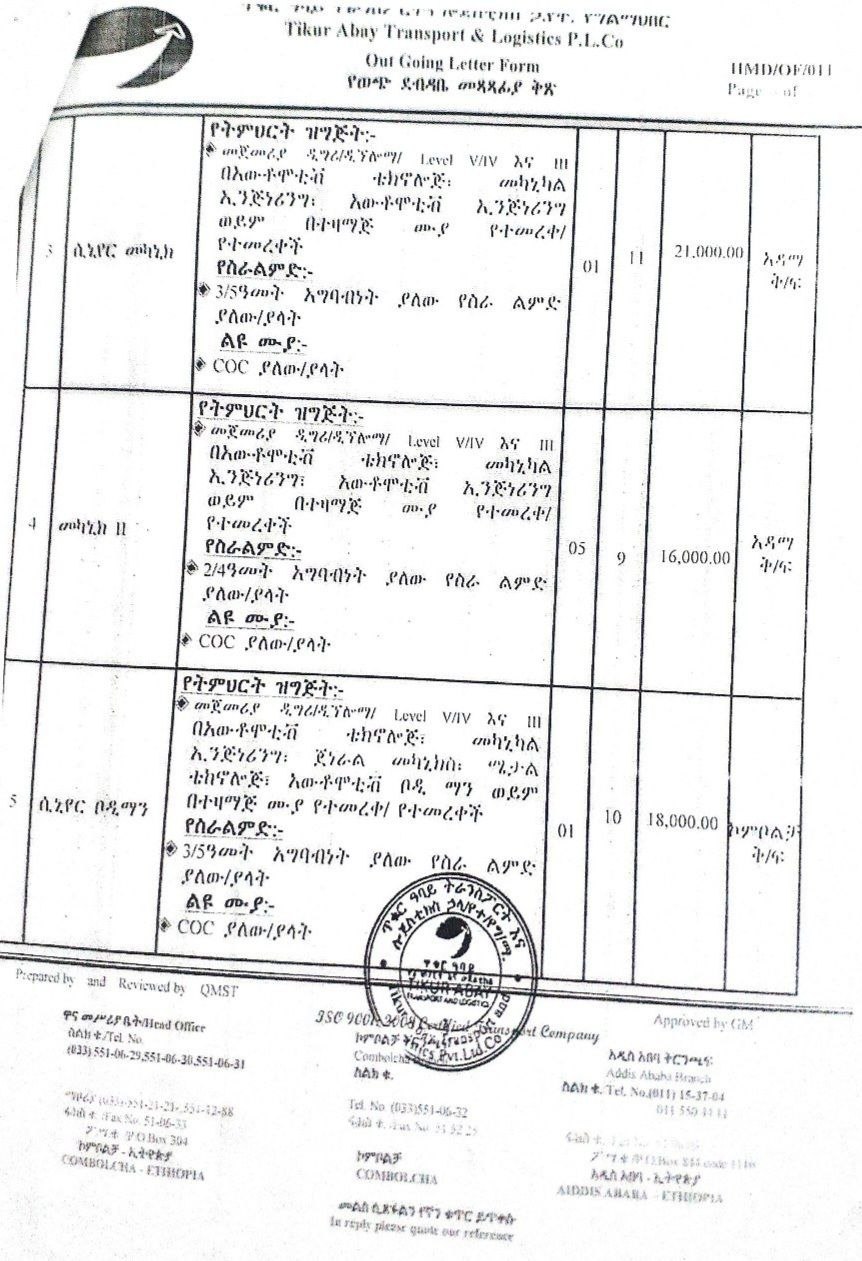 Tikur Abay Transport & Logistics P.L.Co
Out Going Letter Form
የወጭ ደብዳቤ መጻጻፊያ ቅጽ
HMD/OF/011
Page of
3
ሲኒየር መካኒክ
የትምህርት ዝግጅት:-
መጀመሪያ ዲግሪ/ዲፕሎማ/ Level V/IV እና III
በአውቶሞቲቭ ቴክኖሎጅ፣ መካኒካል
ኢንጅነሪንግ፣ አውቶሞቲቭ ኢንጅነሪንግ
ወይም በተዛማጅ ሙያ የተመረቀ/
የተመረቀች
የስራልምድ:-
3/5ዓመት አግባብነት ያለው የስራ ልምድ
ያለው/ያላት
ልዩ ሙያ:-
COC ያለው/ያላት
01
11
21,000.00
አዳማ
ቅ/ፍ
4
መካኒክ II
የትምህርት ዝግጅት:-
መጀመሪያ ዲግሪ/ዲፕሎማ/ Level V/IV እና III
በአውቶሞቲቭ ቴክኖሎጅ፣ መካኒካል
ኢንጅነሪንግ፣ አውቶሞቲቭ ኢንጅነሪንግ
ወይም በተዛማጅ ሙያ የተመረቀ/
የተመረቀች
የስራልምድ:-
2/4ዓመት አግባብነት ያለው የስራ ልምድ
ያለው/ያላት
ልዩ ሙያ:-
COC ያለው/ያላት
05
9
16,000.00
አዳማ
ቅ/ፍ
5
ሲኒየር ቦዲማን
የትምህርት ዝግጅት:-
መጀመሪያ ዲግሪ/ዲፕሎማ/ Level V/IV እና III
በአውቶሞቲቭ ቴክኖሎጅ፣ መካኒካል
ኢንጅነሪንግ፣ ጀነራል መካኒክስ፣ ሜታል
ቴክኖሎጅ፣ አውቶሞቲቭ ቦዲ ማን ወይም
በተዛማጅ ሙያ የተመረቀ/ የተመረቀች
የስራልምድ:-
3/5ዓመት አግባብነት ያለው የስራ ልምድ
ያለው/ያላት
ልዩ ሙያ:-
COC ያለው/ያላት
01
10
18,000.00
ኮምቦልቻ
ቅ/ፍ
ጥቁር ዓባይ ትራንስፖርት እና
ጥቁር ዓባይ
TIKUR ABAY
TRANSPORT AND LOGISTICS
Prepared by and Reviewed by QMST
ISO 9001:2008 Certified Transport Company
Approved by GM
ዋና መሥሪያ ቤት/Head Office
ስልክ ቁ./Tel. No.
(033) 551-06-29,551-06-30,551-06-31
Fax No. 51-06-33
P.O.Box 304
ኮምቦልቻ - ኢትዮጵያ
COMBOLCHA - ETHIOPIA
Combolcha
ስልክ ቁ.
Tel. No. (033)551-06-32
ኮምቦልቻ
COMBOLCHA
አዲስ አበባ
Addis Ababa Branch
ስልክ ቁ. Tel. No.(011) 15-37-04
አዲስ አበባ - ኢትዮጵያ
AIDDIS ABABA - ETHIOPIA
In reply please quote our reference